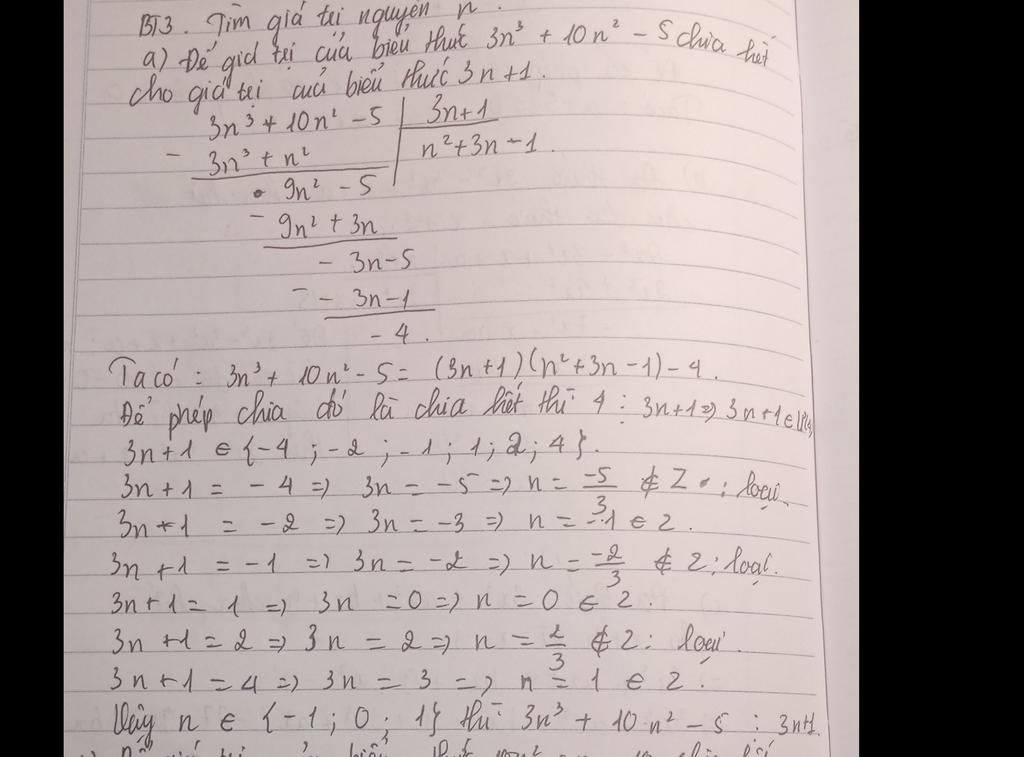 BT3. Tìm giá trị nguyên n.
a) Để giá trị của biểu thức 3n³ + 10n² - 5 chia hết
cho giá trị của biểu thức 3n+1.
3n³ + 10n² - 5 | 3n+1
- 3n³ + n² | n² + 3n - 1
9n² - 5
- 9n² + 3n
- 3n - 5
- - 3n - 1
- 4.
Ta có : 3n³ + 10n² - 5 = (3n+1)(n² + 3n - 1) - 4.
Để phép chia đó là chia hết thì 4 ⋮ 3n+1 => 3n+1 ∈ Ư(4)
3n+1 ∈ {-4 ; -2 ; -1 ; 1 ; 2 ; 4}.
3n+1 = -4 => 3n = -5 => n = -5/3 ∉ Z : loại.
3n+1 = -2 => 3n = -3 => n = -1 ∈ Z.
3n+1 = -1 => 3n = -2 => n = -2/3 ∉ Z : loại.
3n+1 = 1 => 3n = 0 => n = 0 ∈ Z.
3n+1 = 2 => 3n = 2 => n = 2/3 ∉ Z : loại.
3n+1 = 4 => 3n = 3 => n = 1 ∈ Z.
Vậy n ∈ {-1 ; 0 ; 1} thì 3n³ + 10n² - 5 ⋮ 3n+1.